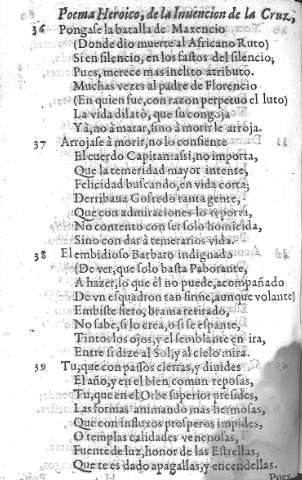 Poema Heroico, de la Inuencion de la Cruz,
36 Pongase la batalla de Maxencio
(Donde dio muerte al Africano Ruto)
Si en silencio, en los fastos del silencio,
Pues, merece mas inclito atributo.
Muchas vezes al padre de Florencio
(En quien fue, con razon perpetuo el luto)
La vida dilatò, que su congoja
Yà, no à matar, sino à morir le arroja.
37 Arrojase à morir, no lo consiente
El cuerdo Capitan: assi, no importa,
Que la temeridad mayor intente,
Felicidad buscando, en vida corta;
Derribaua Gofredo tanta gente,
Que con admiraciones lo reporta,
No contento con ser solo homicida,
Sino con dar à temerarios vida.
38 El embidioso Barbaro indignado
(De ver, que solo basta Paborante,
A hazer, lo que èl no puede, acompañado
De vn esquadron tan firme, aunque volante)
Embiste fiero, brama retirado,
No sabe, si lo crea, o si se espante,
Tintos los ojos, y el semblante en ira,
Entre si dize al Sol, y al cielo mira.
39 Tu, que con passos cierras, y diuides
El año, y en el bien comun reposas,
Tu, que en el Orbe superior presides,
Las formas animando mas hermosas,
Que con influxos prosperos impides,
O templas calidades venenosas,
Fuente de luz, honor de las Estrellas,
Que te es dado apagallas, y encendellas.
Pues